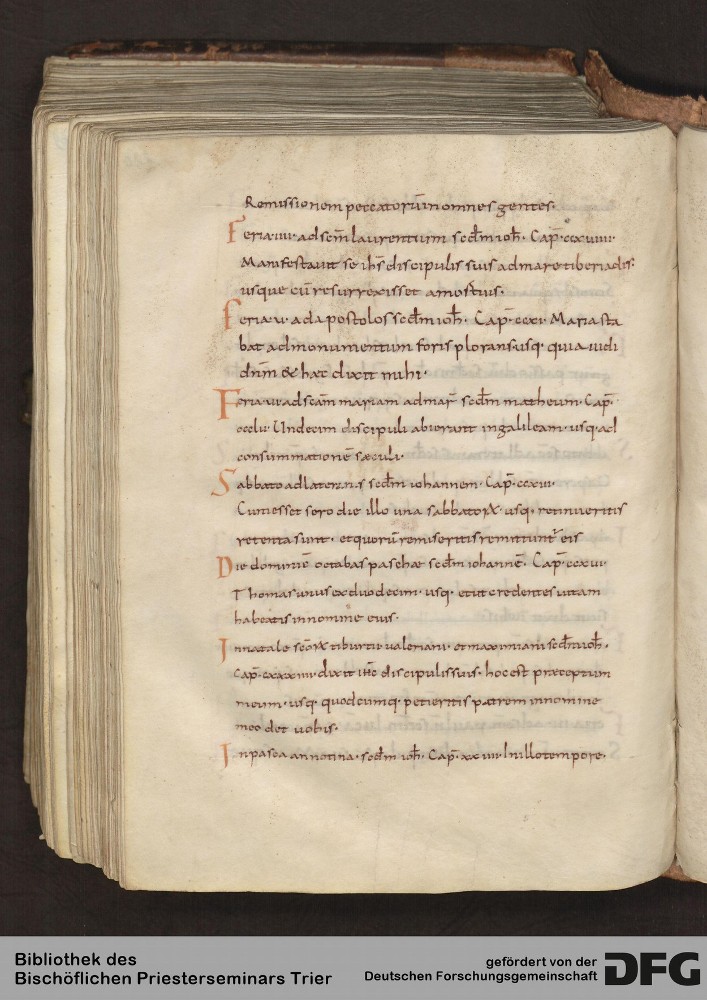 Remissionem peccatorū in omnes gentes.
Feria · iiii · ad scm̄ laurentium scdm̄ ioh̄ · Cap̄ · ccxviiii ·
Manifestavit se ih̄s discipulis suis ad mare tiberiadis ·
usque cū resurrexisset a mortuis ·
Feria · v · ad apostolos scdm̄ ioh̄ · Cap̄ · ccxi · Maria sta
bat ad monumentum foris plorans usq · quia uidi
dnm̄ & haec dixit mihi ·
Feria · vi · ad scām mariam ad mar̄ scdm̄ matheum · Cap̄ ·
ccclv · Undecim discipuli abierunt in galileam · usq · ad
consummationē saeculi ·
Sabbato ad lateranis scdm̄ iohannem · Cap̄ · ccxiii ·
Cum esset sero die illo una sabbatorꝝ · usq · retinueritis
retenta sunt · et quorū remiseritis remittunt̄ eis
Die dominic̄ octabas paschae scdm̄ iohannē · Cap̄ · ccxvii ·
Thomas unus ex duodecim · usq · et ut credentes uitam
habeatis in nomine eius ·
In natale scōrꝝ tiburtii ualeriani · et maximiani scdm̄ ioh̄ ·
Cap̄ · cxxxviiii · dixit ih̄c discipulis suis · hoc est praeceptum
meum · usq · quodcumq · petieritis patrem in nomine
meo det uobis ·
In pasca annotina · scdm̄ ioh̄ · Cap̄ · xxiiii · In illo tempore ·
Bibliothek des
Bischöflichen Priesterseminars Trier
gefördert von der
Deutschen Forschungsgemeinschaft
DFG